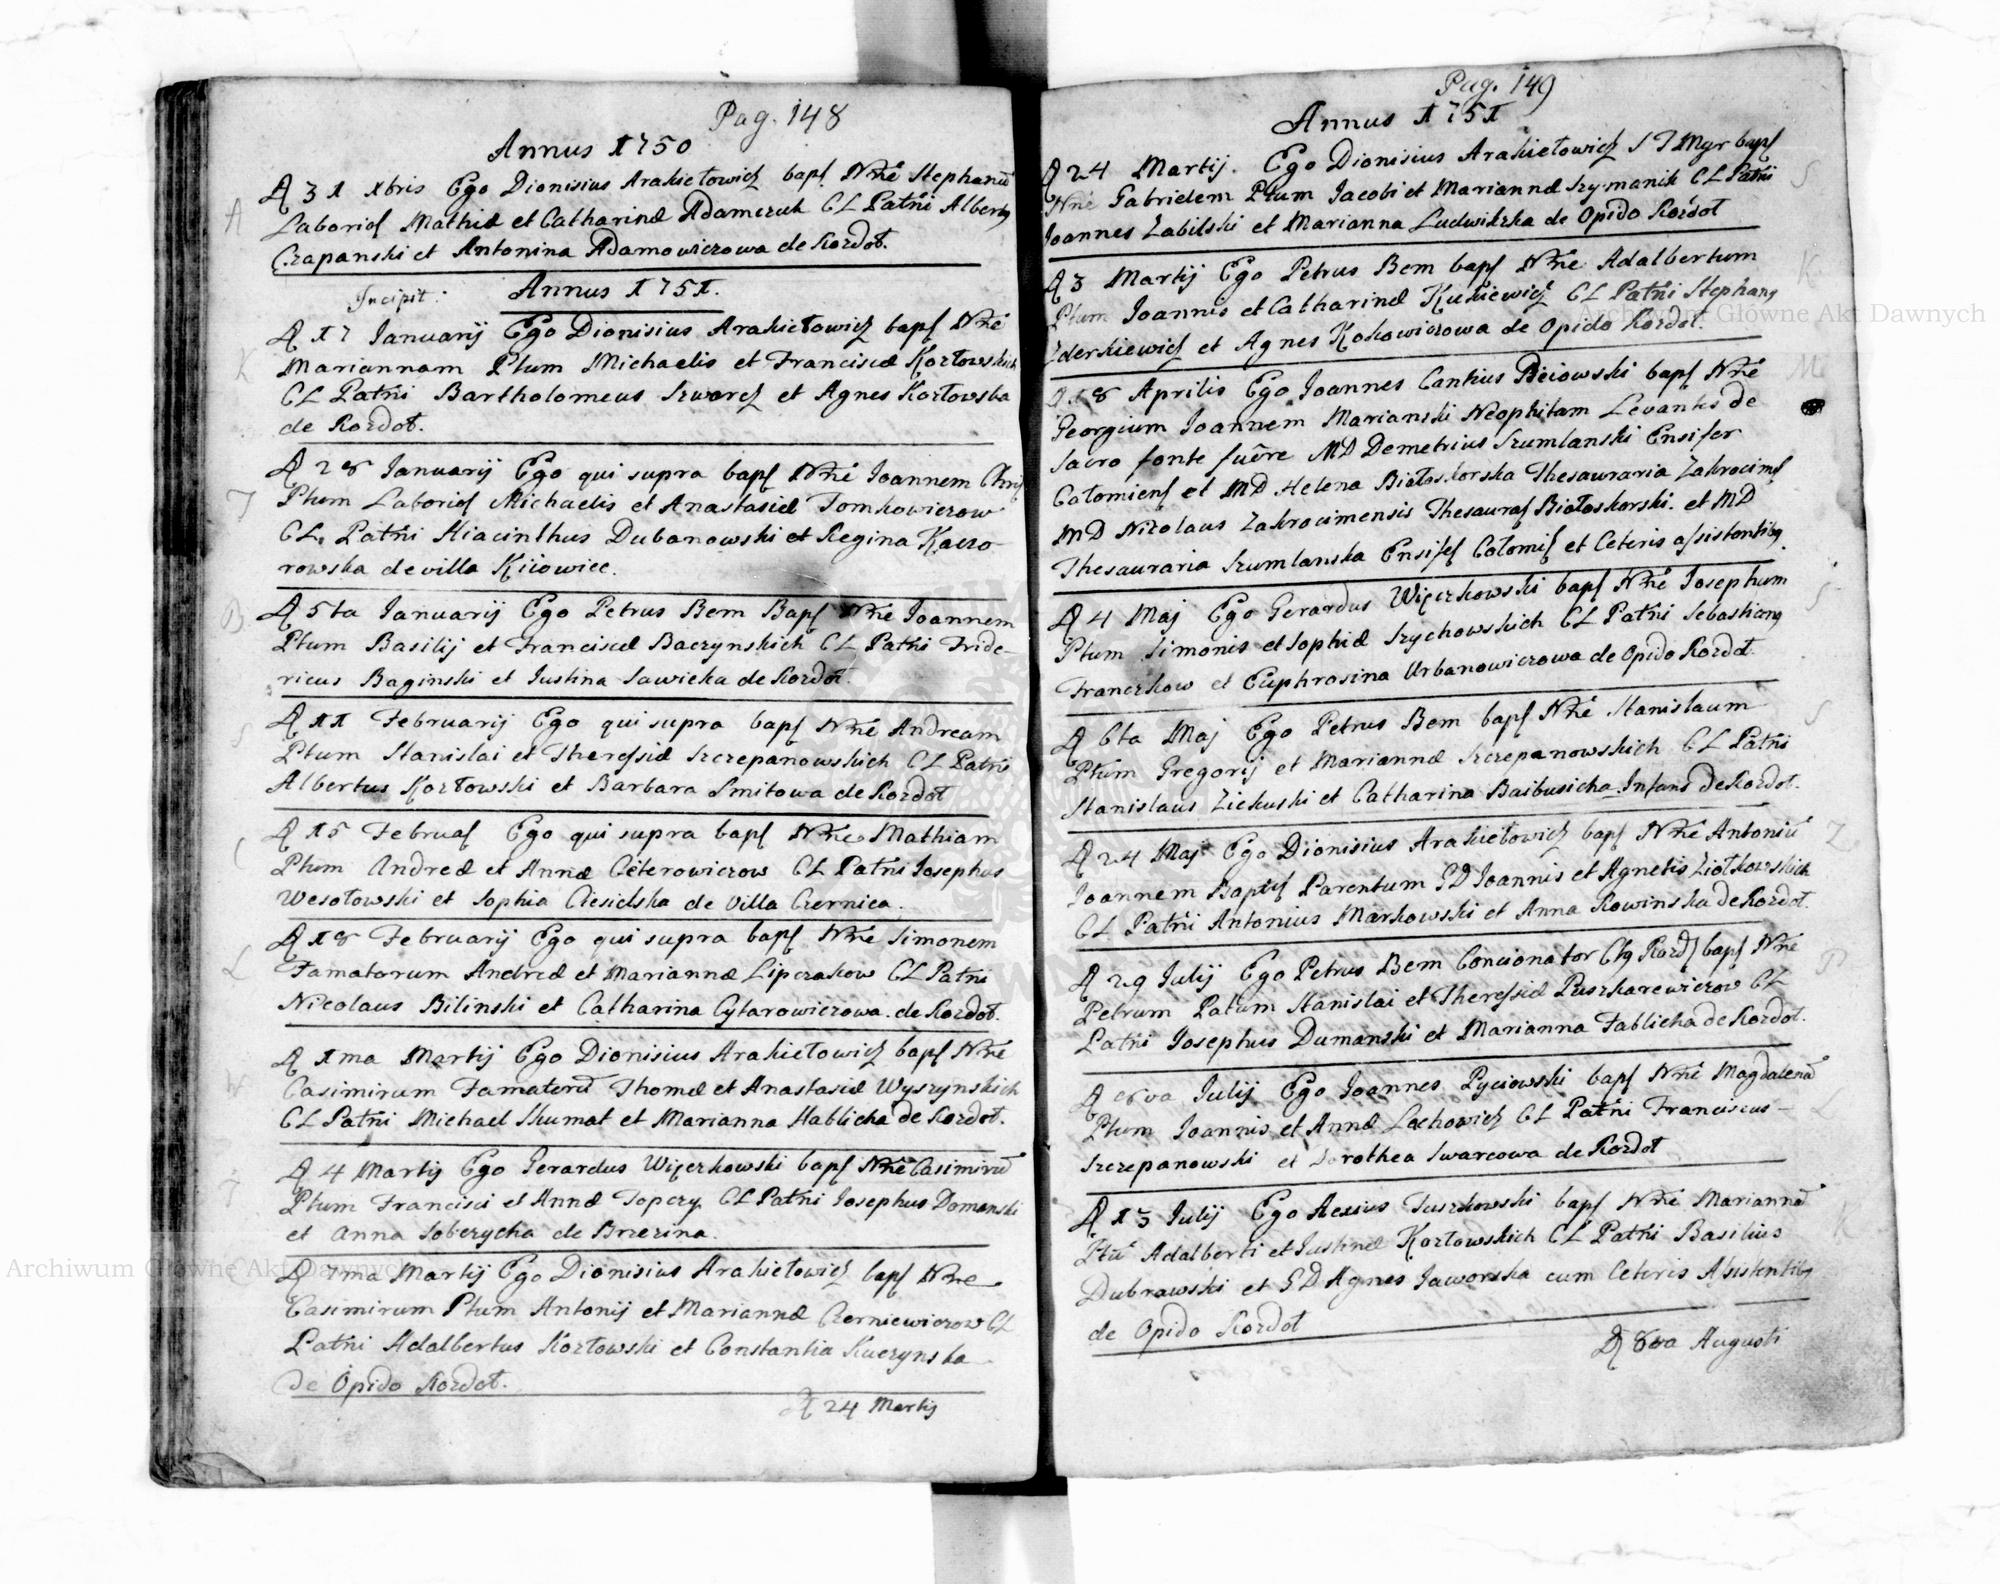 Pag. 148
Annus 1750
A
D 31 Xbris Ego Dionisius Arakiełowicz bapt Nrñe Stephanũ
Laborios Mathiæ et Catharinæ Adamczuk CL Patñi Albertus
Czapanski et Antonina Adamowiczowa de Kozdoł.
Incipit: Annus 1751.
D 17 Januarij Ego Dionisius Arakiełowicz bapt Nrñe
K
Mariannam Ptum Michaelis et Franciscæ Kozłowskich
CL Patñi Bartholomeus Szwarcz et Agnes Kozłowska
de Kozdoł.
D 28 Januarij Ego qui supra bapt Nrñe Joannem Chry
T
Ptum Laborios Michaelis et Anastasiæ Tomkowiczow
CL. Patñi Hiacinthus Dubanowski et Regina Kaczo
rowska de villa Kiiowiec.
B
D 5ta Januarij Ego Petrus Bem Bapt Nrñe Joannem
Ptum Basilij et Franciscæ Baczynskich CL Patñi Fride-
ricus Baginski et Justina Sawicka de Kozdoł.
D 11 Februarij Ego qui supra bapt Nrñe Andream
S
Ptum Stanislai et Theressiæ Szczepanowskich CL Patñi
Albertus Kozłowski et Barbara Smitowa de Kozdoł
D 15 Februar Ego qui supra bapt Nrñe Mathiam
C
Ptum Andreæ et Annæ Citerowiczow CL Patñi Josephus
Wesołowski et Sophia Ciesielska de Villa Czernica.
D 18 Februarij Ego qui supra bapt Nrñe Simonem
L
Famatorum Andreæ et Mariannæ Lipczakow CL Patñi
Nicolaus Bilinski et Catharina Cytarowiczowa de Kozdoł.
D 1ma Martij Ego Dionisius Arakiełowicz bapt Nrñe
W
Casimirum Famatorũ Thomæ et Anastasiæ Wyszynskich
CL Patñi Michael Skumat et Marianna Hablicka de Kozdoł.
D 4 Martij Ego Gerardus Więczkowski bapt Nrñe Casimirũ
T
Ptum Francisci et Annæ Topczy CL Patñi Josephus Domanski
et Anna Soberycha de Brzezina.
D 7ma Martij Ego Dionisius Arakiełowicz bapt Nrñe
C
Casimirum Ptum Antonij et Mariannæ Czerniewiczow CL
Patñi Adalbertus Kozłowski et Constantia Kuczynska
de Opido Kozdoł.
D 24 Martij
Pag. 149
Annus 1751
D 24 Martij. Ego Dionisius Arakiełowicz S T Mgr bapt
S
Nrñe Gabrielem Ptum Jacobi et Mariannæ Szymanik CL Patñi
Joannes Zabilski et Marianna Ludwikzka de Opido Kozdoł
D 3 Martij Ego Petrus Bem bapt Nrñe Adalbertum
K
Ptum Joannis et Catharinæ Kukiewicz CL Patñi Stephanus
Zderkiewicz et Agnes Kokowiczowa de Opido Kozdoł.
M
D 18 Aprilis Ego Joannes Cantius Piciowski bapt Nrñe
Georgium Joannem Marianski Neophitam Levantes de
Sacro fonte fuêre MD Demetrius Szumlanski Ensifer
Cołomiens et MD Helena Białoskorska Thesauraria Zakrocims
MD Nicolaus Zakrocimensis Thesauras Białoskorski. et MD
Thesauraria Szumlanska Ensifes Cołomis et Ceteris assistentibus.
D 4 Maj Ego Gerardus Więczkowski bapt Nrñe Josephum
S
Ptum Simonis et Sophiæ Szychowskich CL Patñi Sebastianus
Franczkow et Euphrosina Urbanowiczowa de Opido Kozdoł.
D 6ta Maj Ego Petrus Bem bapt Nrñe Stanislaum
S
Ptum Gregorij et Mariannæ Szczepanowskich CL Patñi
Stanislaus Ziekuski et Catharina Baibusicha Infans de Kozdoł.
D 24 Maj Ego Dionisius Arakiełowicz bapt Nrñe Antoniũ
Z
Joannem Baptist Parentum GD Joannis et Agnetis Ziołkowskich
CL Patñi Antonius Markowski et Anna Rowinska de Kozdoł.
D 29 Julij Ego Petrus Bem Concionator Ctq Rozd bapt Nrñe
P
Petrum Patum Stanislai et Theressiæ Puszkarewiczow CL
Patñi Josephus Dumanski et Marianna Fablicka de Kozdoł.
D 8va Julij Ego Joannes Pyciowski bapt Nrñe Magdalenã
L
Ptum Joannis et Annæ Lachowicz CL Patñi Franciscus
Szczepanowski et Dorothea Swarcowa de Kozdoł
D 13 Julij Ego Alexius Tuszkowski bapt Nrñe Mariannã
K
Ptũ Adalberti et Justinæ Kozłowskich CL Patñi Basilius
Dubrawski et GD Agnes Jaworska cum Ceteris Assistentibus
de Opido Kozdoł
D 8va Augusti
Archiwum Główne Akt Dawnych
Archiwum Główne Akt Dawnych